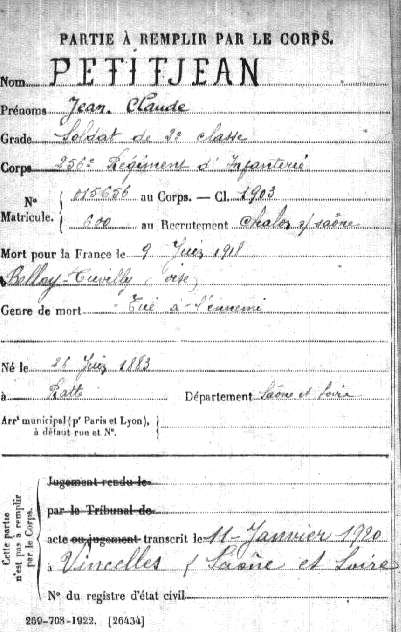 PARTIE À REMPLIR PAR LE CORPS.
Nom PETITJEAN
Prénoms Jean Claude
Grade Soldat de 2e classe
Corps 256e Régiment d'Infanterie
N° Matricule. 015656 au Corps. — Cl. 1903
600 au Recrutement Chalon s/ Saône
Mort pour la France le 9 Juin 1918
Cuvilly (Oise)
Genre de mort Tué à l'ennemi
Né le 28 Juin 1883
à Ratte Département Saône et Loire
Arrt municipal (pr Paris et Lyon),
à défaut rue et N°.
Cette partie n'est pas à remplir par le Corps.
Jugement rendu le
par le Tribunal de
acte ou jugement transcrit le 11 Janvier 1920
à Vincelles (Saône et Loire
N° du registre d'état civil
269-708-1922. [26434]